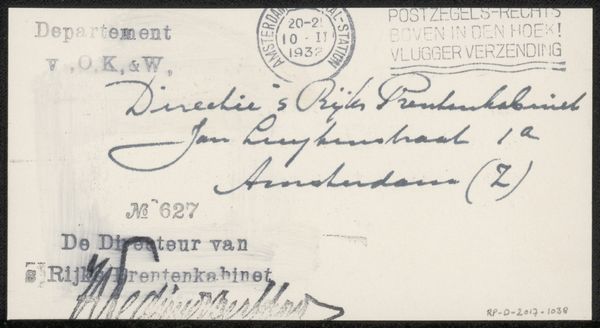 Departement
v.,O.K,&W,
AMSTERDAM CENTRAAL-STATION
20-21
10 - II
1932
POSTZEGELS-RECHTS
BOVEN IN DEN HOEK!
VLUGGER VERZENDING
Directie 's Rijks Prentenkabinet
Jan Luykenstraat 1a
Amsterdam (Z)
№ 627
De Directeur van
's Rijks Prentenkabinet
RP-D-2017-1038